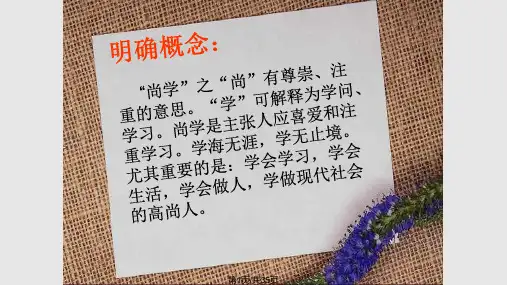 明确概念：
“尚学”之“尚”有尊崇、注
重的意思。“学”可解释为学问、
学习。尚学是主张人应喜爱和注
重学习。学海无涯，学无止境。
尤其重要的是：学会学习，学会
生活，学会做人，学做现代社会
的高尚人。